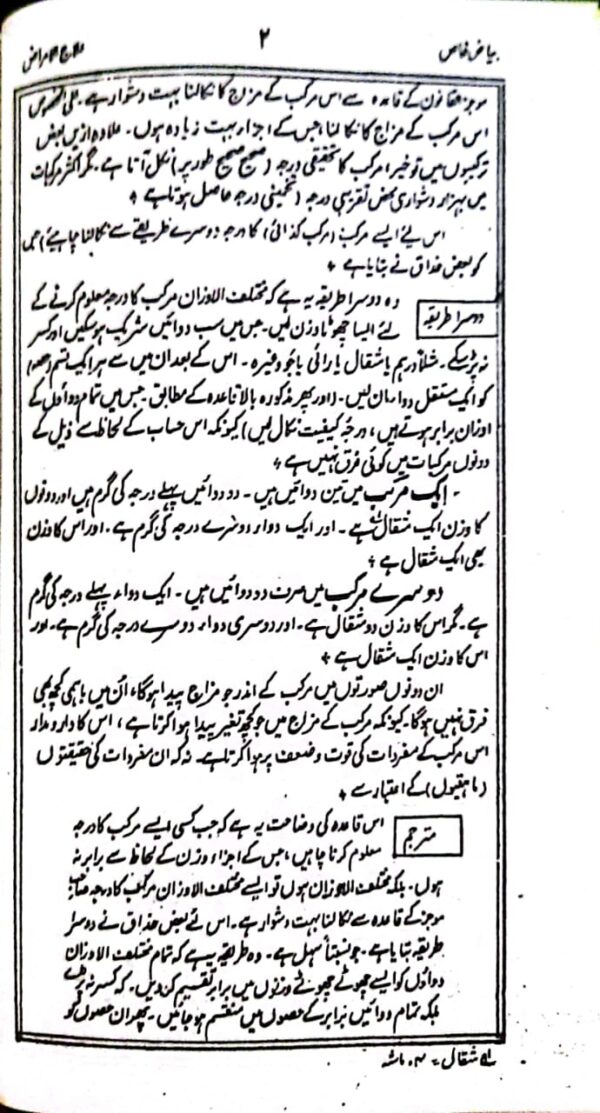 بیاض خاص
۲
علاج الامراض
موجز القانون کے قاعدہ سے اس مرکب کے مزاج کا نکالنا بہت دشوار ہے۔ علی الخصوص
اس مرکب کے مزاج کا نکالنا، جس کے اجزار بہت زیادہ ہوں۔ علاوہ ازیں بعض
ترکیبوں میں تو خیر، مرکب کا تحقیقی درجہ (صحیح صحیح طور پر) نکل آتا ہے۔ مگر اکثر مرکبات
میں بہزار دشواری محض تقریبی درجہ (تخمینی درجہ حاصل ہوتا ہے ۔
اس لئے ایسے مرکب (مرکب کذائی) کا درجہ دوسرے طریقے سے نکالنا چاہیئے، جس
کو بعض حذاق نے بتایا ہے ۔
دوسرا طریقہ
وہ دوسرا طریقہ یہ ہے کہ مختلف الاوزان مرکب کا درجہ معلوم کرنے کے
لئے ایسا چھوٹا وزن لیں۔ جس میں سب دوائیں شریک ہو سکیں اور کسر
نہ پڑ سکے۔ مثلاً درہم یا مثقال یا رائی یا جَو وغیرہ۔ اس کے بعد ان میں سے ہر ایک قسم (حصہ)
کو ایک مستقل دوا مان لیں۔ (اور پھر مذکورہ بالا قاعدہ کے مطابق۔ جس میں تمام دواؤں کے
اوزان برابر ہوتے ہیں، درجۂ کیفیت نکال لیں) کیونکہ اس حساب کے لحاظ سے ذیل کے
دونوں مرکبات میں کوئی فرق نہیں ہے ۔
۔ ایک مرکب میں تین دوائیں ہیں۔ دو دوائیں پہلے درجہ کی گرم ہیں اور دونوں
کا وزن ایک مثقال ہے۔ اور ایک دوار دوسرے درجہ کی گرم ہے۔ اور اس کا وزن
بھی ایک مثقال ہے ۔
دوسرے مرکب میں صرف دو دوائیں ہیں۔ ایک دواء پہلے درجہ کی گرم
ہے۔ مگر اس کا وزن دو مثقال ہے۔ اور دوسری دواء دوسرے درجہ کی گرم ہے۔ اور
اس کا وزن ایک مثقال ہے ۔
ان دونوں صورتوں میں مرکب کے اندر جو مزاج پیدا ہوگا، اُن میں باہمی کچھ بھی
فرق نہیں ہوگا۔ کیونکہ مرکب کے مزاج میں جو کچھ تغیر پیدا ہوا کرتا ہے، اس کا دار و مدار
اس مرکب کے مفردات کی قوت و ضعف پر ہوا کرتا ہے۔ نہ کہ ان مفردات کی حقیقتوں
(ماہیتوں) کے اعتبار سے ۔
مترجم
اس قاعدہ کی وضاحت یہ ہے کہ جب کسی ایسے مرکب کا درجہ
معلوم کرنا چاہیں، جس کے اجزاء وزن کے لحاظ سے برابر نہ
ہوں۔ بلکہ مختلف الاوزان ہوں تو ایسے مختلف الاوزان مرکب کا درجہ صاحب
موجز کے قاعدہ سے نکالنا بہت دشوار ہے۔ اس لئے بعض حذاق نے دوسرا
طریقہ بتایا ہے۔ جو نسبتاً سہل ہے۔ وہ طریقہ یہ ہے کہ تمام مختلف الاوزان
دواؤں کو ایسے چھوٹے چھوٹے وزنوں میں برابر تقسیم کر دیں۔ کہ کسر نہ پڑے
بلکہ تمام دوائیں برابر کے حصوں میں منقسم ہو جائیں۔ پھر ان حصوں کو
لہ مثقال = ۴ ماشہ